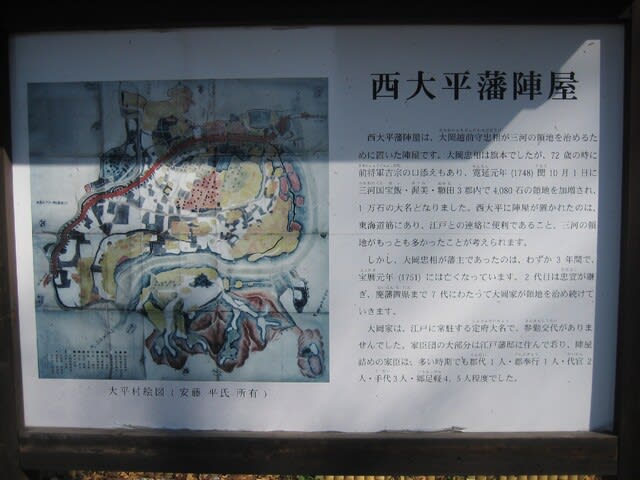 西大平藩陣屋
西大平藩陣屋は、大岡越前守忠相が三河の領地を治めるた
めに置いた陣屋です。大岡忠相は旗本でしたが、72歳の時に
前将軍吉宗の口添えもあり、寛延元年(1748)閏10月1日に
三河国宝飯・渥美・額田3郡内で4,080石の領地を加増され、
1万石の大名となりました。西大平に陣屋が置かれたのは、
東海道筋にあり、江戸との連絡に便利であること、三河の領
地がもっとも多かったことが考えられます。
しかし、大岡忠相が藩主であったのは、わずか3年間で、
宝暦元年(1751)には亡くなっています。2代目は忠宜が継
ぎ、廃藩置県まで7代にわたって大岡家が領地を治め続けて
いきます。
大岡家は、江戸に常駐する定府大名で、参勤交代がありま
せんでした。家臣団の大部分は江戸藩邸に住んでおり、陣屋
詰めの家臣は、多い時期でも郡代1人・郡奉行1人・代官2
人・手代3人・郷足軽4、5人程度でした。
大平村絵図(安藤 平氏 所有)